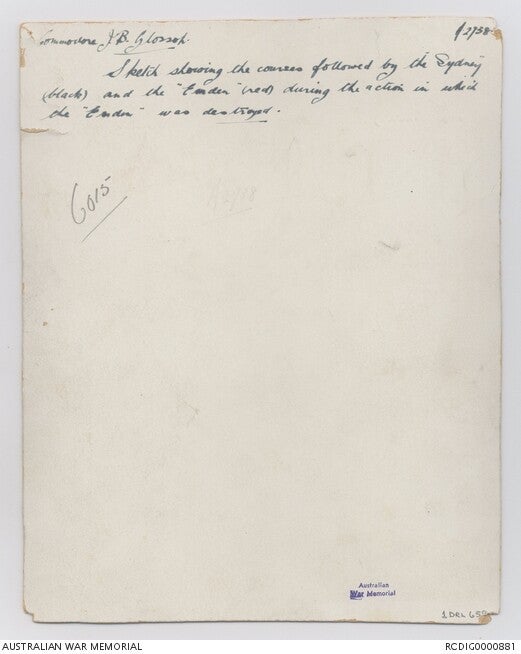 1/2/38
Commodore J. B. Glossop.
Sketch showing the courses followed by the Sydney
(black) and the "Emden" (red) during the action in which
the "Emden" was destroyed.
6015
Australian
War Memorial
1 DRL
AUSTRALIAN WAR MEMORIAL
RCDIG0000881